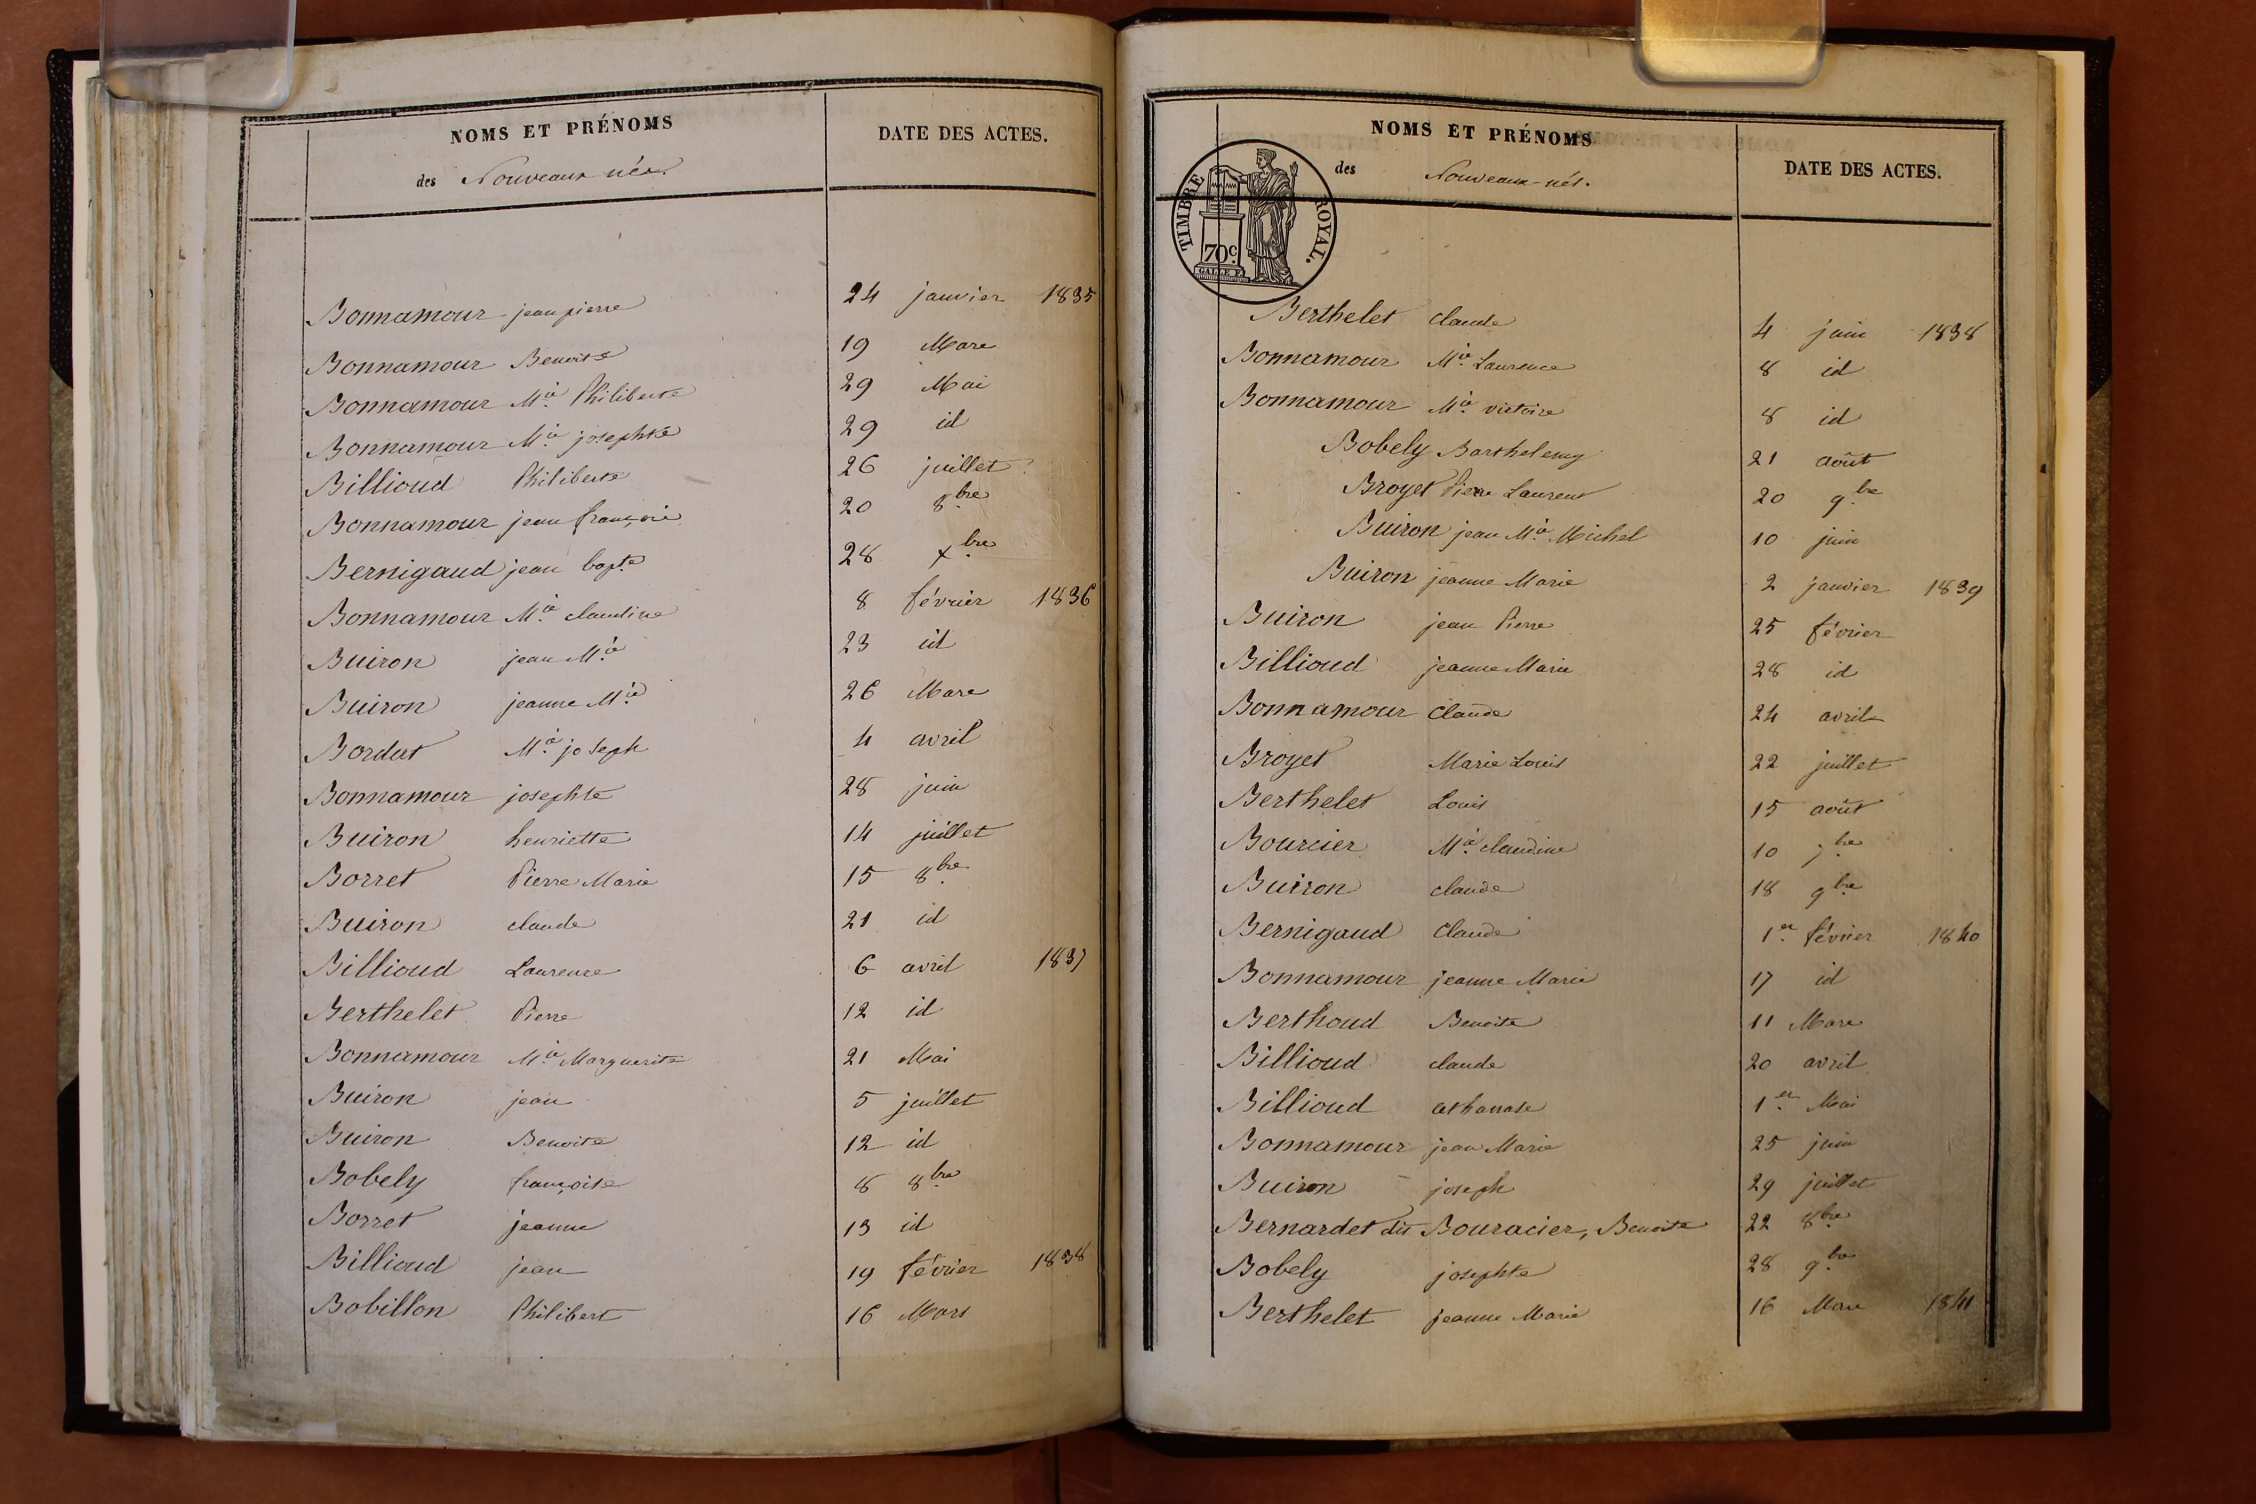 NOMS ET PRÉNOMS DATE DES ACTES.
des Nouveaux nés.
Bonnamour jean pierre 24 janvier 1835
Bonnamour Benoite 19 Mars
Bonnamour Mie Philiberte 29 Mai
Bonnamour Mie josephte 29 id
Billioud Philiberte 26 juillet
Bonnamour jean françois 20 8bre
Bernigaud jean bapte 28 xbre
Bonnamour Mie claudine 8 février 1836
Buiron jean Mie 23 id
Buiron jeanne Mie 26 Mars
Bordat Mie joseph 4 avril
Bonnamour josephte 28 juin
Buiron henriette 14 juillet
Borret Pierre Marie 15 8bre
Buiron claude 21 id
Billioud Laurence 6 avril 1837
Berthelet Pierre 12 id
Bonnamour Mie Marguerite 21 Mai
Buiron jean 5 juillet
Buiron Benoite 12 id
Bobely françoise 8 8bre
Borret jeanne 13 id
Billioud jean 19 février 1838
Bobillon Philibert 16 Mars
NOMS ET PRÉNOMS DATE DES ACTES.
des Nouveaux-nés.
TIMBRE ROYAL.
70c.
Berthelet claude 4 juin 1838
Bonnamour Mie Laurence 8 id
Bonnamour Mie victoire 8 id
Bobely Barthelemy 21 août
Broyet Pierre Laurent 20 9bre
Buiron jean Mie Michel 10 juin
Buiron jeanne Marie 2 janvier 1839
Buiron jean Pierre 25 février
Billioud jeanne Marie 28 id
Bonnamour Claude 24 avril
Broyet Marie Louis 22 juillet
Berthelet Louis 15 août
Bourcier Mie claudine 10 7bre
Buiron claude 18 9bre
Bernigaud Claude 1er février 1840
Bonnamour jeanne Marie 17 id
Berthoud Benoite 11 Mars
Billioud claude 20 avril
Billioud athanase 1er Mai
Bonnamour jean Marie 25 juin
Buiron joseph 29 juillet
Bernardet dit Bouracier, Benoite 22 8bre
Bobely josephte 28 9bre
Berthelet jeanne Marie 16 Mars 1841